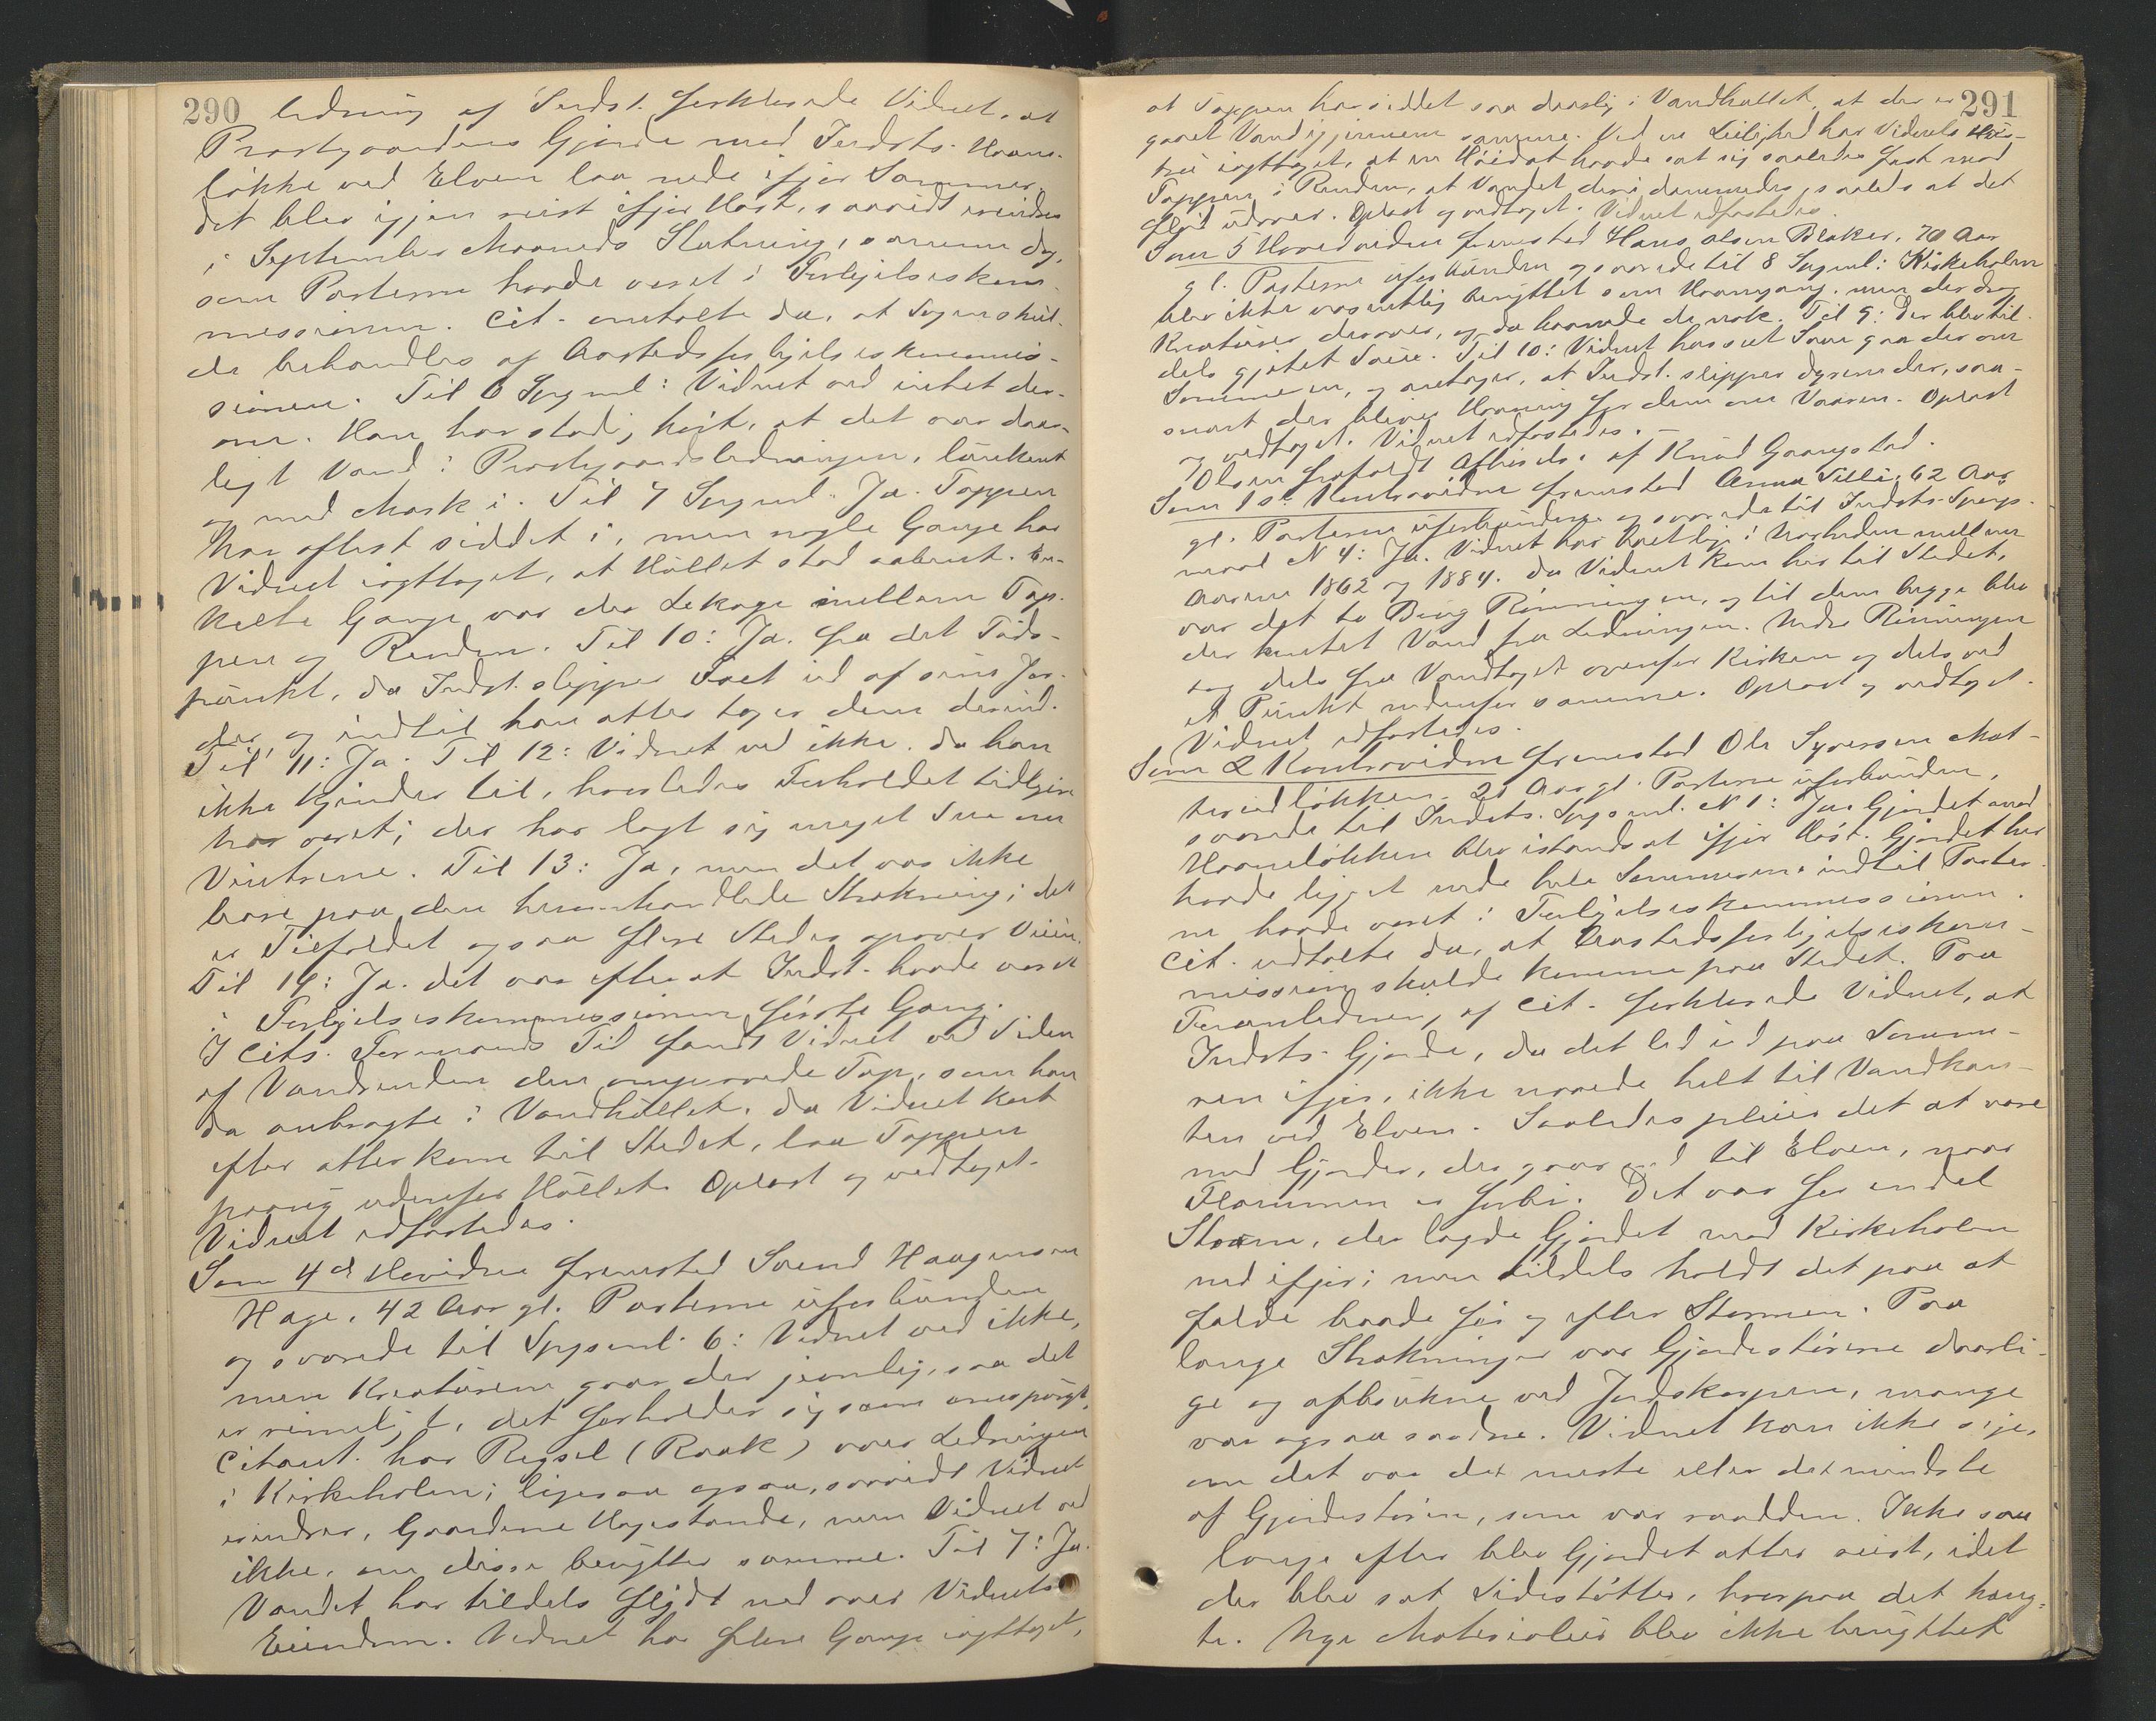 290
ledning af Indst. forklarede Vidnet, at
Prostgaardens Gjærde mod Indsts. Havne-
løkke ved Elven laa nede ifjor Sommer,
det blev igjen reist ifjor Høst, saavidt erindres
i September Maaneds Slutning, samme Dag,
som Parterne havde været i Forligelseskom-
missionen. Cit. omtalte da, at Søgsmaal skul-
de behandles af Aastedsforligelseskommis-
sionen. Til 6 Spgml: Vidnet ved intet der-
om. Han har stadig hørt, at det var daar-
ligt Vand i Prostgaardsledningen, lunkent
og med Mark i. Til 7 Spgml. Ja. Tappen
har oftest siddet i, men nogle Gange har
Vidnet iagttaget, at Hullet stod aabent. En-
kelte Gange var der Lekage mellem Tap-
pen og Renden. Til 10: Ja. fra det Tids-
punkt, da Indst. slipper Faet ud af sine Jor-
der og indtil han atter tager dem derind.
Til 11: Ja. Til 12: Vidnet ved ikke, da han
ikke kjender til, hvorledes Forholdet tidligere
har været; der har lagt sig meget Sne om
Vintrene. Til 13: Ja, men det var ikke
bare paa den heromhandlede Strækning; det
er Tilfældet ogsaa flere Steder opover Veien.
Til 14: Ja. det var efterat Indst. havde været
i Forligelseskommissionen første Gang.
I Cits. Formands Tid fandt Vidnet ved Siden
af Vandrenden den omspurte Tap, som han
da anbragte i Vandhullet. Da Vidnet kort
efter atter kom til Stedet, laa Tappen
paany udenfor Hullet. Oplæst og vedtaget.
Vidnet edfæstedes.
Som 4de Hovidne fremsted Svend Haagensen
Hage, 42 Aar gl. Parterne uforbunden
og svarede til Spgsml. 6: Vidnet ved ikke,
men Kreaturene gaar der jevnlig, saa det
er rimeligt, det forholder sig som omspurgt.
Citant. har Regsel (Raak) over Ledningen
i Kirkeholen; ligesaa ogsaa, saavidt Vidnet
erindrer, Gaardene Hagestande, men Vidnet ved
ikke, om disse benytter samme. Til 7: Ja.
Vandet har tildels flydt ned over Vidnets
Eiendom. Vidnet har flere Gange iagttaget,
291
at Tappen har siddet saa daarlig i Vandhullet, at der er
gaaet Vand igjennem samme. Ved en Leilighed har Vidnets Hus-
tru iagttaget, at en Høidot havde sat sig saaledes fast mod
Tappen i Renden, at Vandet deri dæmmedes, saaledes at det
flød udover. Oplæst og vedtaget. Vidnet edfæstedes.
Som 5 Hovedvidne fremsted Hans Olsen Bloker, 70 Aar
gl. Parterne uforbunden og svarede til 8 Spgml: Kirkeholen
blev ikke væsentlig benyttet som Havnegang, men der drog
Kreaturer derover, og da havnede de nok. Til 9: Der blev til-
dels gjætet Sauer. Til 10: Vidnet har seet Sauer gaa der om
Sommeren, og antager, at Indst. slipper dyrene der, saa-
snart der bliver Havning for dem om Vaaren. Oplæst
og vedtaget. Vidnet edfæstedes.
Olsen frafaldt Afhørelse af Knud Gaangstad.
Som 1st Kontravidne fremsted Anna Tilli, 62 Aar
gl. Parterne uforbunden og svarede til Indsts Spørgs-
maal N 4: Ja. Vidnet har boet lige i Nærheden mellem
Aarene 1862 og 1884. Da Vidnet kom her til Stedet,
var det to Brug Rønningen, og til dem begge blev
der hentet Vand fra Ledningen. Nedre Rønningen
tog dels fra Vandtaget ovenfor Kirken og dels ved
et Punkt nedenfor samme. Oplæst og vedtaget.
Vidnet edfæstedes.
Som 2 Kontravidne fremsted Ole Syversen Mat-
terudløkken, 21 Aar gl. Parterne uforbunden,
svarede til Indsts. Spgsml. N 1: Ja. Gjærdet mod
Havneløkken blev istandsat ifjor Høst. Gjærdet her
havde ligget nede hele Sommeren, indtil Parter-
ne havde været i Forligelseskommissionen.
Cit. udtalte da, at Aastedsforligelseskom-
missionen skulde komme paa Stedet. Paa
Foranledning af Cit. forklarede Vidnet, at
Indsts Gjærde, da det led ud paa Somme-
ren ifjor, ikke naaede helt til Vandkan-
ten ved Elven. Saaledes pleier det at være
med Gjærder, der gaar ned til Elven, naar
Flommen er forbi. Det var for endel
Storm, der lagde Gjærdet mod Kirkeholen
ned ifjor; men tildels holdt det paa at
falde baade før og efter Stormen. Paa
lange Strækninger var Gjærdestørene daarli-
ge og afbrukne ved Jordskorpen, mange
var ogsaa raadne. Vidnet kan ikke sige,
om det var det meste eller det mindste
af Gjærdestøren, som var raadden. Ikke saa
længe efter blev Gjærdet atter reist, idet
der blev sat Sidestøtter, hvorpaa det hæng-
te. Nye Materialier blev ikke benyttet